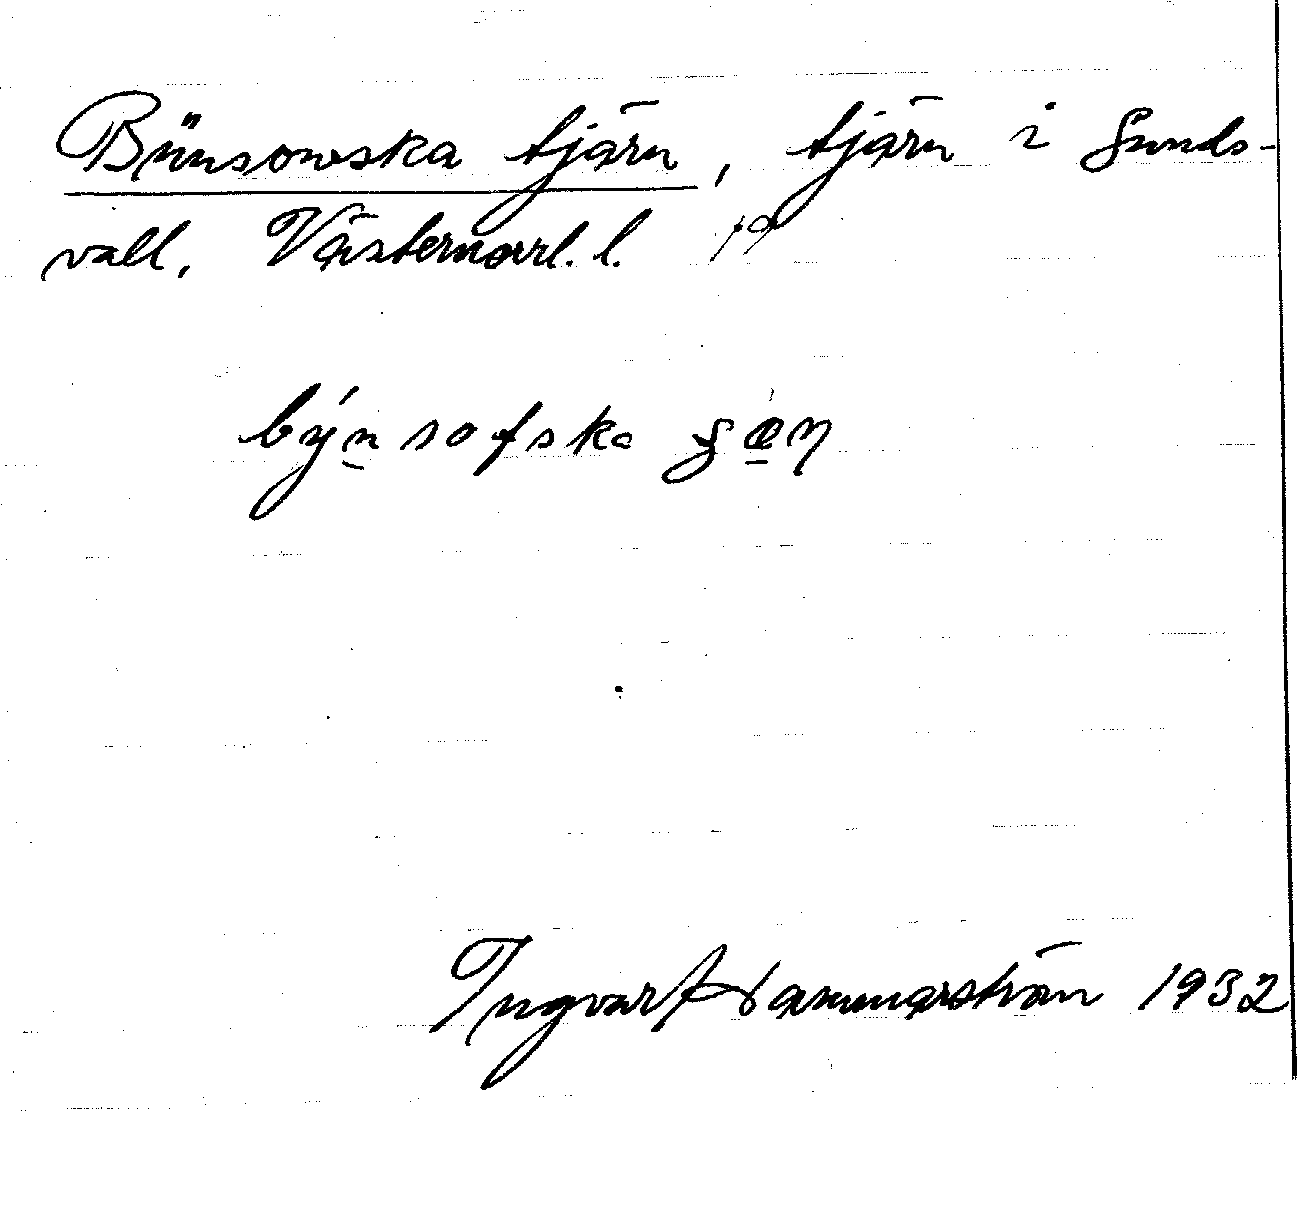 Bünsowska tjärn, tjärn i Sunds-
vall. Västernorrl. l.
býn̲sofska
Ingvar Hammarström 1932